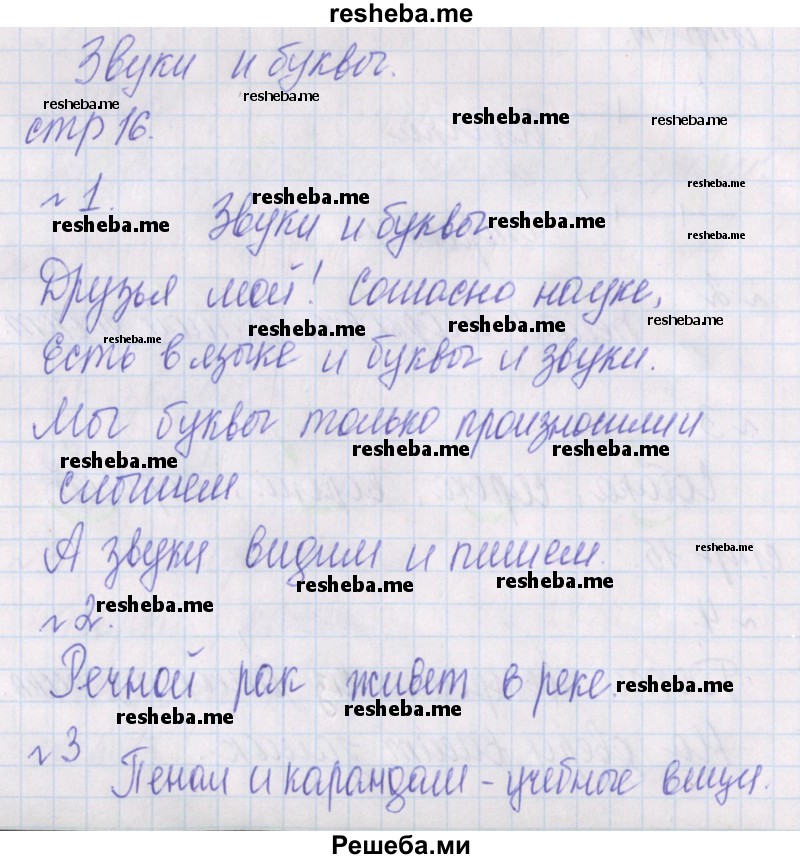 resheba.me
Звуки и буквы.
resheba.me resheba.me
стр 16.
resheba.me resheba.me
resheba.me
№ 1. resheba.me
resheba.me Звуки и буквы. resheba.me
resheba.me
Друзья мой! Согласно науке,
resheba.me resheba.me resheba.me
resheba.me
Есть в языке и буквы и звуки.
Мы буквы только произносим и
resheba.me resheba.me resheba.me
слышем
А звуки видим и пишем. resheba.me
resheba.me resheba.me
№ 2. resheba.me
Речной рак живет в реке. resheba.me
resheba.me resheba.me
№ 3
Пенал и карандаш - учебные вещи.
Решеба.ми